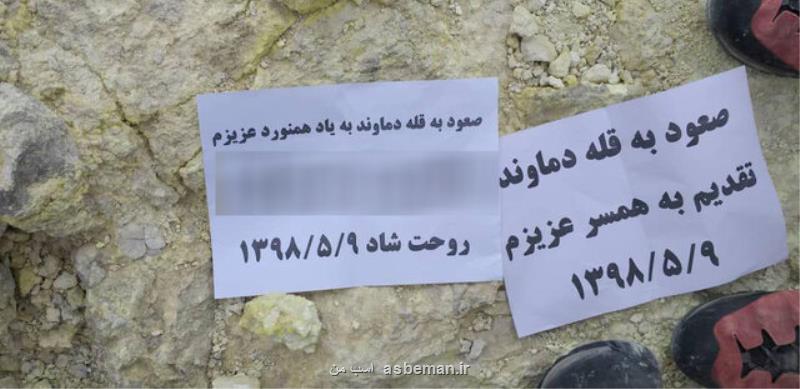 صعود به قله دماوند
تقدیم به همسر عزیزم
۱۳۹۸/۵/۹
صعود به قله دماوند به یاد همنورد عزیزم
روحت شاد ۱۳۹۸/۵/۹
اسب من asbeman.ir